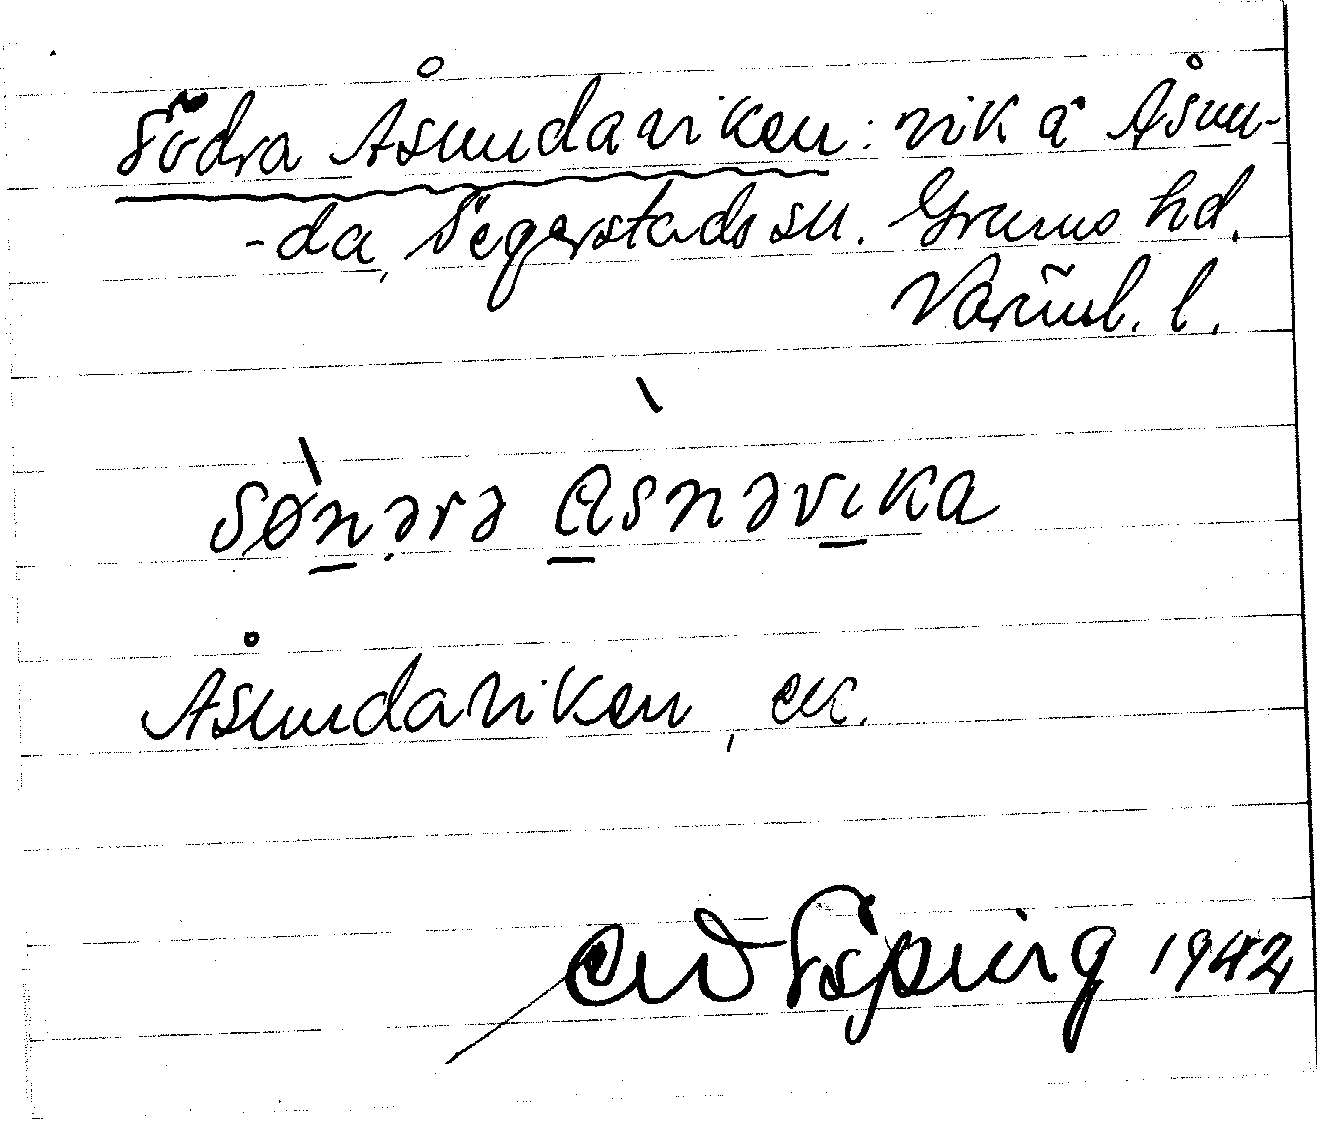 Södra Åsundaviken: vik å Åsun-
-da, Segerstads sn. Grums hd.
Värml. l.
sønərə Asnəvika
Åsundaviken, ek.
1942